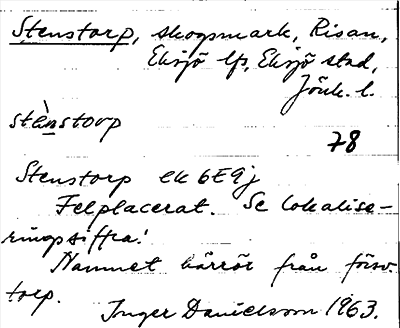 Stenstorp, skogsmark, Risan,
Eksjö lfs, Eksjö stad,
Jönk. l.
stὲnstorp
78
Stenstorp ek 6E9j
Felplacerat. Se lokalise-
ringssiffra!
Namnet härrör från försv.
torp.
Inger Danielsson 1963.